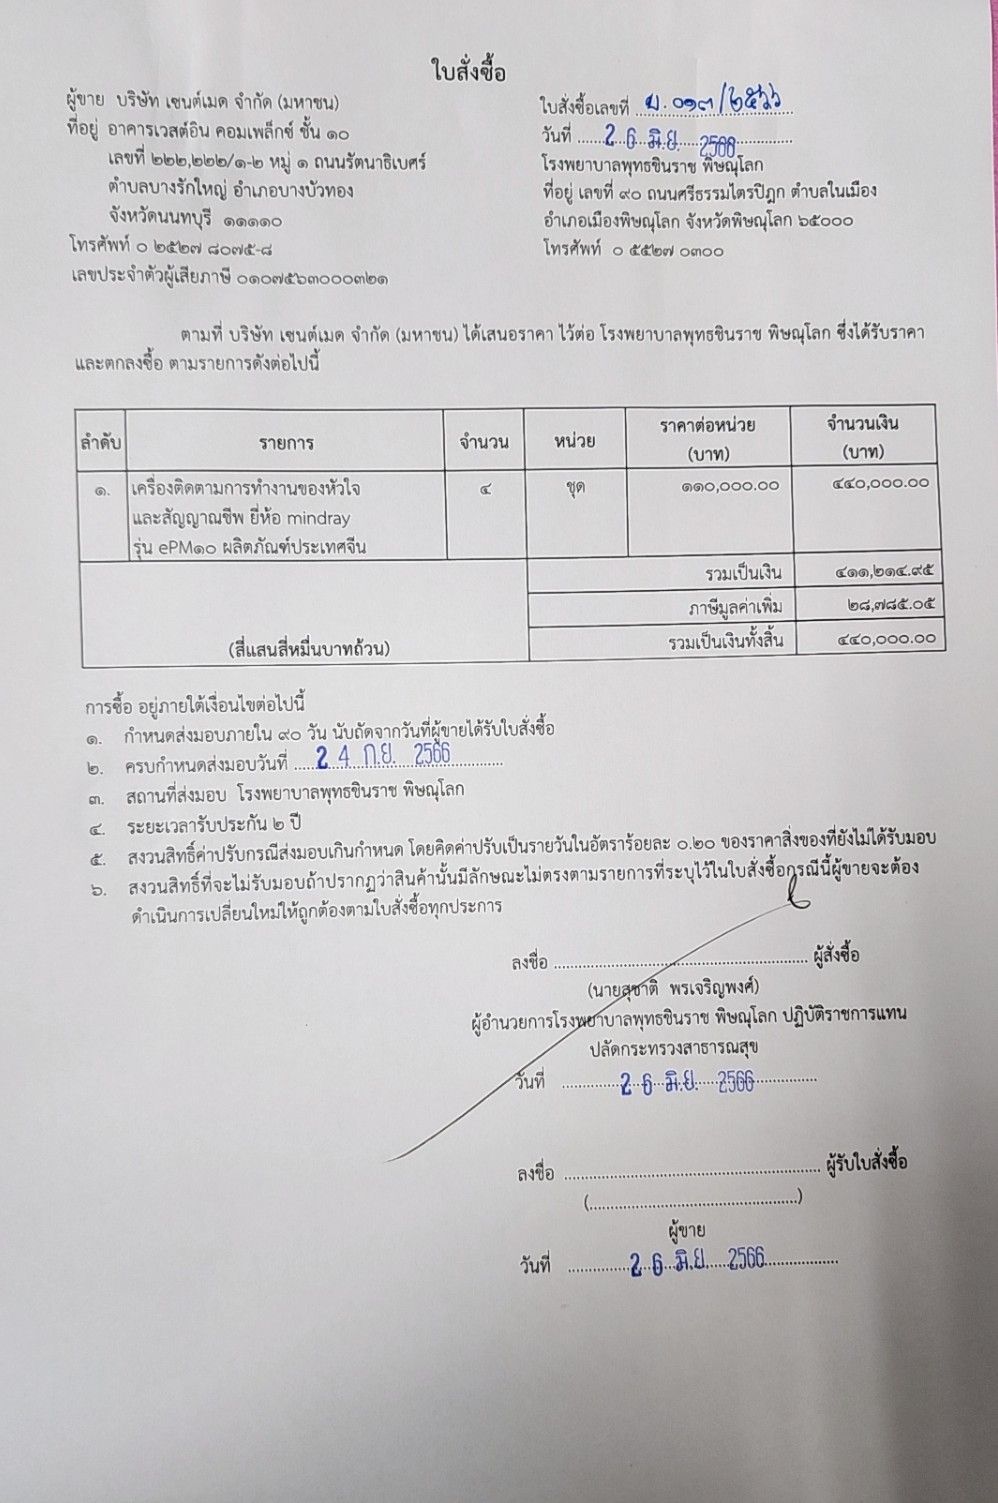 ใบสั่งซื้อ
ผู้ขาย บริษัท เซนต์เมด จำกัด (มหาชน)
ที่อยู่ อาคารเวสต์อิน คอมเพล็กซ์ ชั้น ๑๐
เลขที่ ๒๒๒,๒๒๒/๑-๒ หมู่ ๑ ถนนรัตนาธิเบศร์
ตำบลบางรักใหญ่ อำเภอบางบัวทอง
จังหวัดนนทบุรี ๑๑๑๑๐
โทรศัพท์ ๐ ๒๕๒๗ ๘๐๗๕-๘
เลขประจำตัวผู้เสียภาษี ๐๑๐๗๕๖๓๐๐๐๓๒๑
ใบสั่งซื้อเลขที่ ข.๐๑๓/๒๕๖๖
วันที่ 26 มิ.ย. 2566
โรงพยาบาลพุทธชินราช พิษณุโลก
ที่อยู่ เลขที่ ๙๐ ถนนศรีธรรมไตรปิฎก ตำบลในเมือง
อำเภอเมืองพิษณุโลก จังหวัดพิษณุโลก ๖๕๐๐๐
โทรศัพท์ ๐ ๕๕๒๗ ๐๓๐๐
ตามที่ บริษัท เซนต์เมด จำกัด (มหาชน) ได้เสนอราคา ไว้ต่อ โรงพยาบาลพุทธชินราช พิษณุโลก ซึ่งได้รับราคา
และตกลงซื้อ ตามรายการดังต่อไปนี้
ลำดับ รายการ จำนวน หน่วย ราคาต่อหน่วย (บาท) จำนวนเงิน (บาท)
๑. เครื่องติดตามการทำงานของหัวใจ ๔ ชุด ๑๑๐,๐๐๐.๐๐ ๔๔๐,๐๐๐.๐๐
และสัญญาณชีพ ยี่ห้อ mindray
รุ่น ePM๑๐ ผลิตภัณฑ์ประเทศจีน
รวมเป็นเงิน ๔๑๑,๒๑๔.๙๕
ภาษีมูลค่าเพิ่ม ๒๘,๗๘๕.๐๕
(สี่แสนสี่หมื่นบาทถ้วน) รวมเป็นเงินทั้งสิ้น ๔๔๐,๐๐๐.๐๐
การซื้อ อยู่ภายใต้เงื่อนไขต่อไปนี้
๑. กำหนดส่งมอบภายใน ๙๐ วัน นับถัดจากวันที่ผู้ขายได้รับใบสั่งซื้อ
๒. ครบกำหนดส่งมอบวันที่ 24 ก.ย. 2566
๓. สถานที่ส่งมอบ โรงพยาบาลพุทธชินราช พิษณุโลก
๔. ระยะเวลารับประกัน ๒ ปี
๕. สงวนสิทธิ์ค่าปรับกรณีส่งมอบเกินกำหนด โดยคิดค่าปรับเป็นรายวันในอัตราร้อยละ ๐.๒๐ ของราคาสิ่งของที่ยังไม่ได้รับมอบ
๖. สงวนสิทธิ์ที่จะไม่รับมอบถ้าปรากฏว่าสินค้านั้นมีลักษณะไม่ตรงตามรายการที่ระบุไว้ในใบสั่งซื้อกรณีนี้ผู้ขายจะต้อง
ดำเนินการเปลี่ยนใหม่ให้ถูกต้องตามใบสั่งซื้อทุกประการ
ลงชื่อ ........................ ผู้สั่งซื้อ
(นายสุชาติ พรเจริญพงศ์)
ผู้อำนวยการโรงพยาบาลพุทธชินราช พิษณุโลก ปฏิบัติราชการแทน
ปลัดกระทรวงสาธารณสุข
วันที่ 26 มิ.ย. 2566
ลงชื่อ ........................ ผู้รับใบสั่งซื้อ
(........................)
ผู้ขาย
วันที่ 26 มิ.ย. 2566